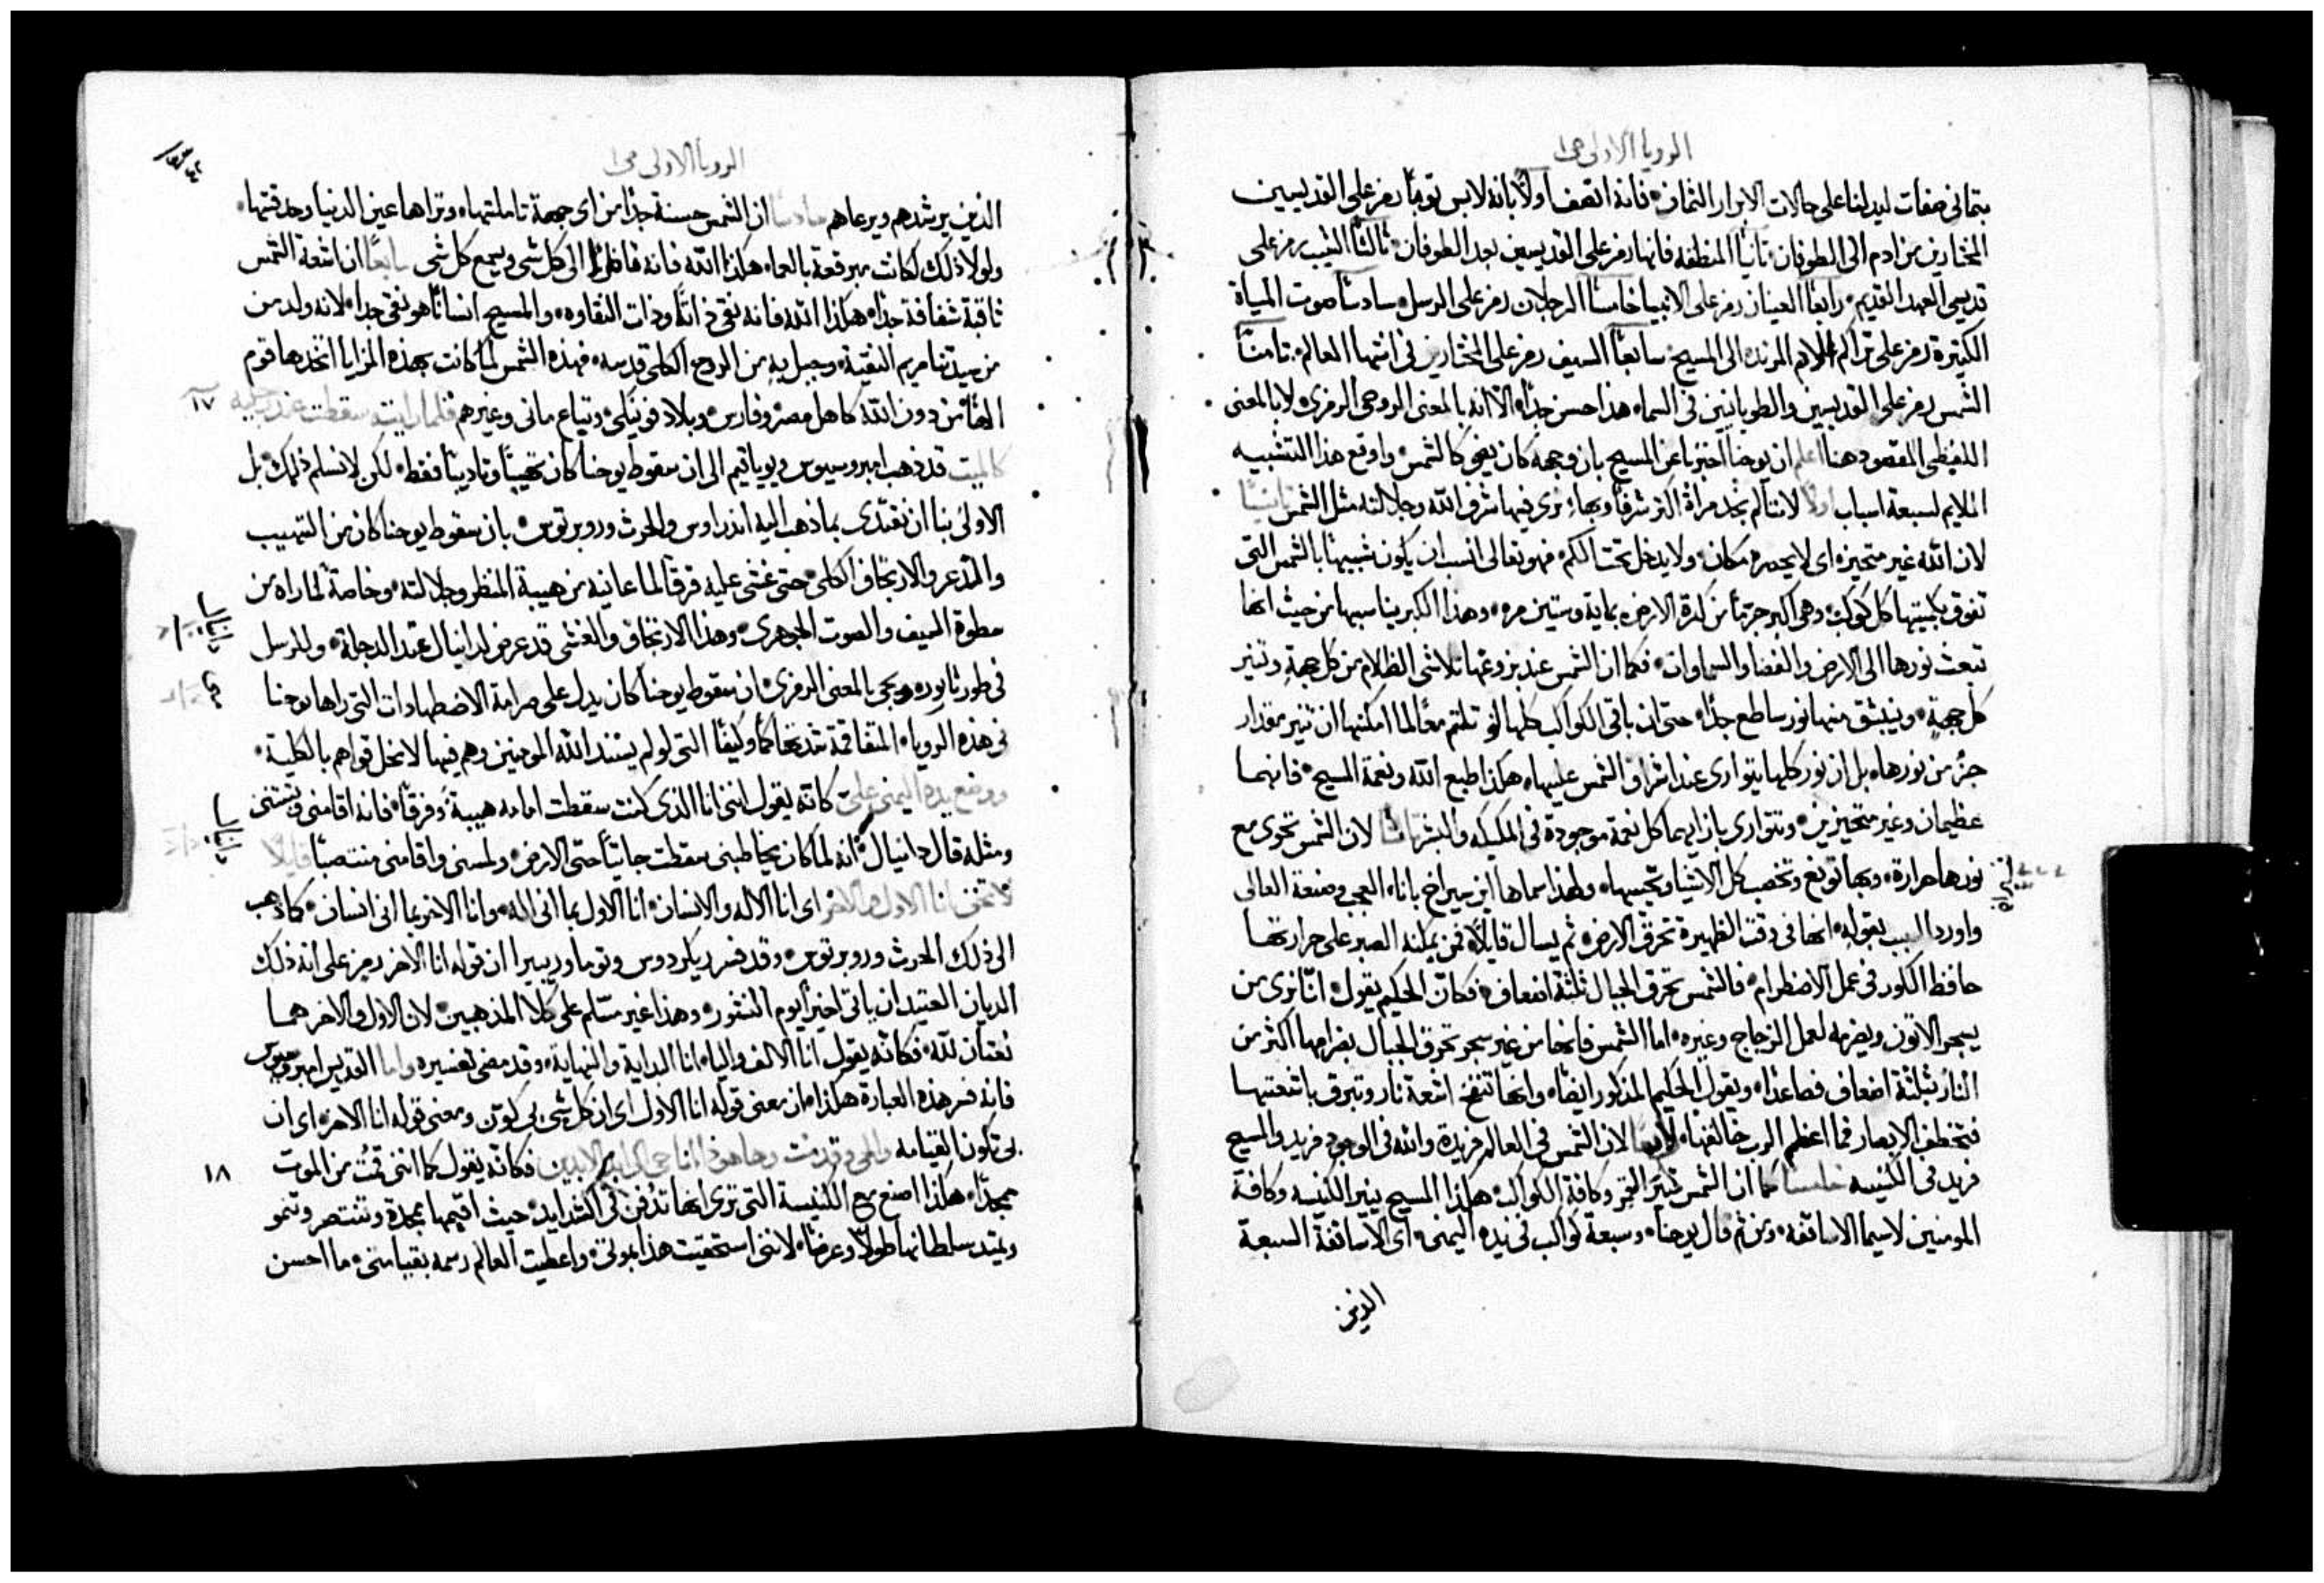 الرويا الاولى ص ١
بتماني صفات ليدلنا على حالات الابرار الثمان فانه اتصف اولًا بانه لابس ثوبًا رمز على القديسين
المختارين من ادم الى الطوفان ثانيًا المنطقه فانها رمز على القديسين بعد الطوفان ثالثًا الشيب رمز على
قديسي العهد القديم رابعًا العينان رمز على الانبيا خامسًا الرجلان رمز على الرسل سادسًا صوت المياة
الكثيرة رمز على تراكم الامم المرتده الى المسيح سابعًا السيف رمز على المختارين في انتها العالم ثامنًا
الشمس رمز على القديسين والطوبانيين في السماء هذا حسن جدًا الا انه بالمعنى الروحي الرمزي لا بالمعنى
اللفظي المقصود هنا اعلم ان يوحنا اخبرنا عن المسيح بان وجهه كان يضي كالشمس واوقع هذا التشبيه
الملايم لسبعة اسباب اولًا لاننا لم نجد مراة اكثر شرفًا وبهاء نرى فيها شرف الله وجلالته مثل الشمس ثانيًا
لان الله غير متحيز اي لا يحصره مكان ولا يدخل تحت الكم فهو تعالى انسب ان يكون شبيهًا بالشمس التي
تفوق بكبيتها كل كوكب وهي اكبر جرمًا من كرة الارض بماية وستين مره وهذا الكبر يناسبها من حيث انها
تبعث نورها الى الارض والفضا والسماوات فكما ان الشمس عند بزوغها تلاشي الظلام من كل جهةٍ وتنير
كل جهةٍ وينبثق منها نور ساطع جدًا حتى ان باقي الكواكب كلها لو تلتم معًا لما امكنها ان تنير مقدار
جزء من نورها بل ان نور كلها يتوارى عند اشراق الشمس عليها هكذا طبع الله ونعمة المسيح فانهما
عظيمان وغير متحيزين وتتوارى بازايهما كل نعمة موجودة في الملايكه والبشر ثالثًا لان الشمس تحوي مع
نورها حرارة وبها تونع وتخصب كل الاشيا وتحييها ولهذا سماها ابن سيراخ باناء العجب وصنعة العالي
واورد السبب بقوله انها في وقت الظهيرة تحرق الارض ثم يسال قايلًا فمن يمكنه الصبر على حرارتها
حافظ الكور في عمل الاضطرام فالشمس تحرق الجبال ثلثة اضعاف فكان الحكيم يقول اننا نرى من
يسجر الاتون ويضرمه لعمل الزجاج وغيره اما الشمس فانها من غير سجر تحرق الجبال بضرامها اكثر من
النار بثلثة اضعاف فصاعدًا ويقول الحكيم المذكور ايضًا وانها تنفخ اشعة نار وتبرق باشعتها
فتخطف الابصار فما اعظم الرب خالقها رابعًا لان الشمس في العالم فريدة والله في الوجود فريد والمسيح
فريد في الكنيسه خامسًا كما ان الشمس تنير القمر وكافة الكواكب هكذا المسيح ينير الكنيسه وكافة
المومنين لاسيما الاساقفه ومن ثم قال يوحنا وسبعة كواكب في يده اليمنى اي الاساقفة السبعة
الذين
الرويا الاولى ص ١
الذين يرشدهم ويرعاهم سادسًا ان الشمس حسنة جدًا من اي جهة تاملتها وتراها عين الدنيا وحدقتها
ولولا ذلك لكانت مبرقعة بالعماء هكذا الله فانه ناظر الى كل شي ويسمع كل شي سابعًا ان اشعة الشمس
ثاقبة شفافة جدًا هكذا الله فانه نقي ذاتًا وذات النقاوه والمسيح انسانًا هو نقي جدًا لانه ولد من
من سيدتنا مريم النقية وحبل به من الروح الكلي قدسه فهذه الشمس لما كانت بهذه المزايا اتخذها قوم
الهًا من دون الله كاهل مصر وفارس وبلاد فونيكي وتباع ماني وغيرهم فلما رايته سقطت عند رجليه ١٧
كالميت قد ذهب امبروسيوس ويوياقيم الى ان سقوط يوحنا كان تهيبًا وتاديبًا فقط لكن لا نسلم ذلك بل
الاولى بنا ان نقتدي بما ذهب اليه اندراوس والحرث وروبرتوس بان سقوط يوحنا كان من التهيب
والذعر والارتجاف الكلي حتى غشي عليه فرقًا لما عاينه من هيبة المنظر وجلالته وخاصة لما راه من
سطوة السيف والصوت الجوهري وهذا الارتجاف والغشي قد عرض لدانيال عند الدجلة وللرسل
في طور ثابور ويجي بالمعنى الرمزي ان سقوط يوحنا كان يدل على صرامة الاضطهادات التي راها يوحنا
في هذه الرويا المتفاقمة شدتها كمًا وكيفًا التي لو لم يسند الله المومنين وهم فيها لانحل قواهم بالكلية
ووضع يده اليمنى عليّ كانه يقول انني انا الذي كنت سقطت امامه هيبةً وفرقًا فانه اقامني
ومثله قال دانيال انه لما كان يخاطبني سقطت جاثيًا حتى الارض ولمسني واقامني منتصبًا قايلًا
لا تخف انا الاول والاخر اي انا الاله والانسان انا الاول بما اني اله وانا الاخر بما اني انسان كما ذهب
الى ذلك الحرث وروبرتوس وقد فسر ريكردوس وتوما وريبيرا ان قوله انا الاخر رمز على انه ذلك
الديان العتيد ان ياتي اخيرًا يوم النشور وهذا غير مسلم على كلا المذهبين لان الاول والاخر هما
نعتان لله فكانه يقول انا الالف واليا انا البداية والنهاية وقد مضى تفسيره واما القديس امبروسيوس
فانه فسر هذه العبارة هكذا ان معنى قوله انا الاول اي ان كل شي بي كون ومعنى قوله انا الاخر اي ان
بي تكون القيامه والحي وقد مت وها هوذا انا حي الى ابد الابدين فكانه يقول كما انني قمت من الموت ١٨
ممجدًا هكذا اصنع مع الكنيسة التي ترى انها تدفن في الشدايد حيث اقيمها ممجدة وتنتصر وتنمو
ويمتد سلطانها طولًا وعرضًا لانني استحقيت هذا بموتي واعطيت العالم رسمه بقيامتي ما احسن